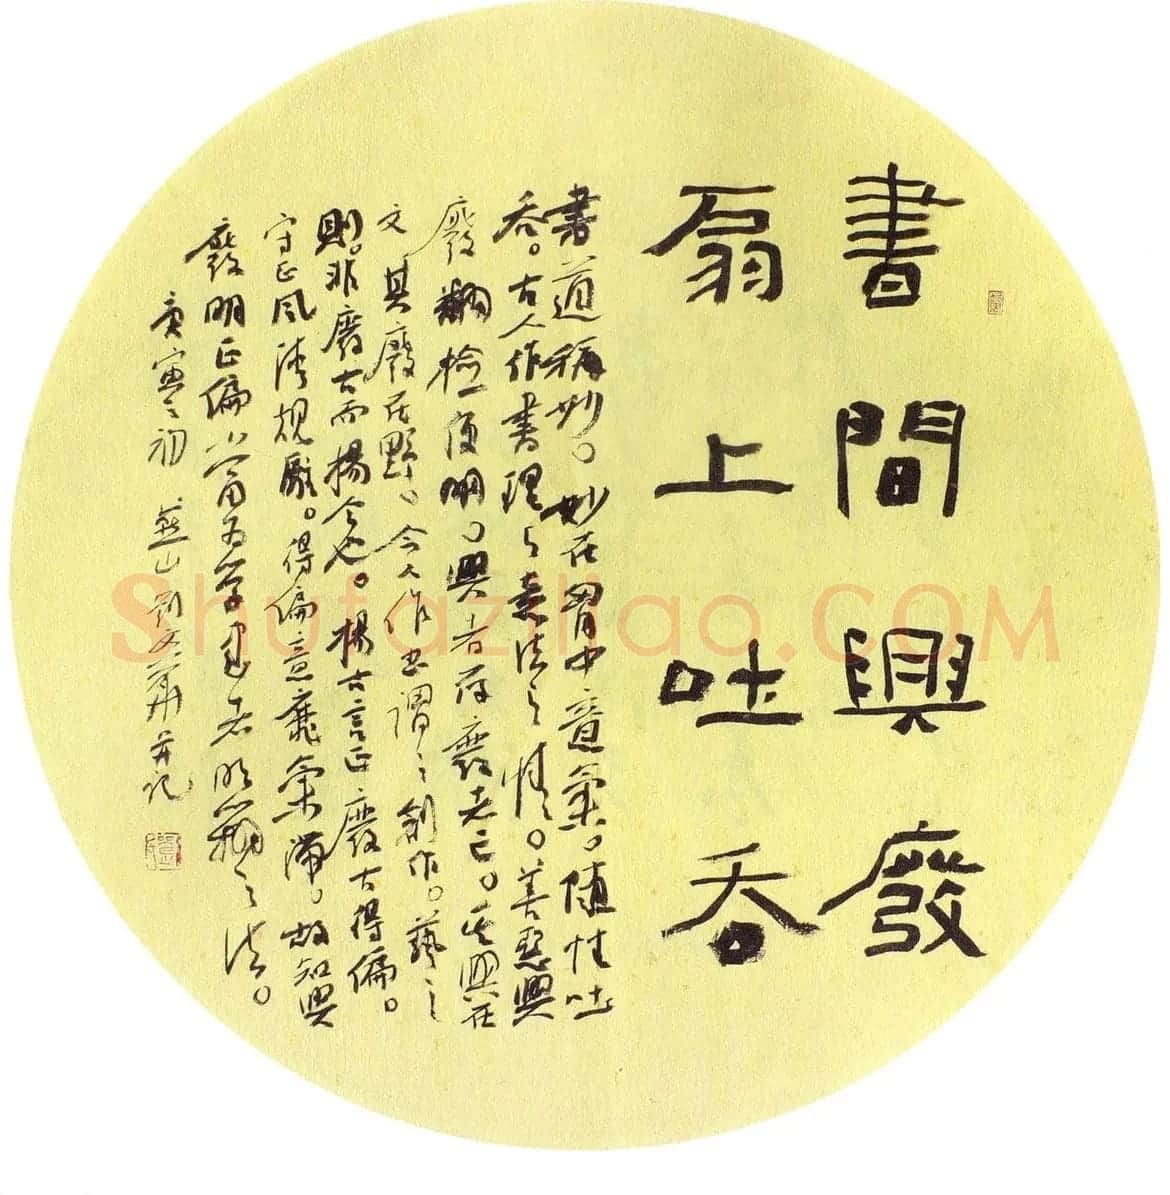 書間興廢
扇上吐吞
書道稱妙。妙在胃中意氣。随性吐
吞。古人作書理之意法之情。善惡興
廢翻檢復明。興者存廢者亡。其興在
文其廢在野。今人作書謂之創作。藝之
則。非廢古而揚今也。揚古言正廢古得偏。
守正風清規嚴。得偏意靡氣滯。故知興
廢明正偏當为学書者明之法。
庚寅之初 燕山劉文華并記
Shufaziliao.COM